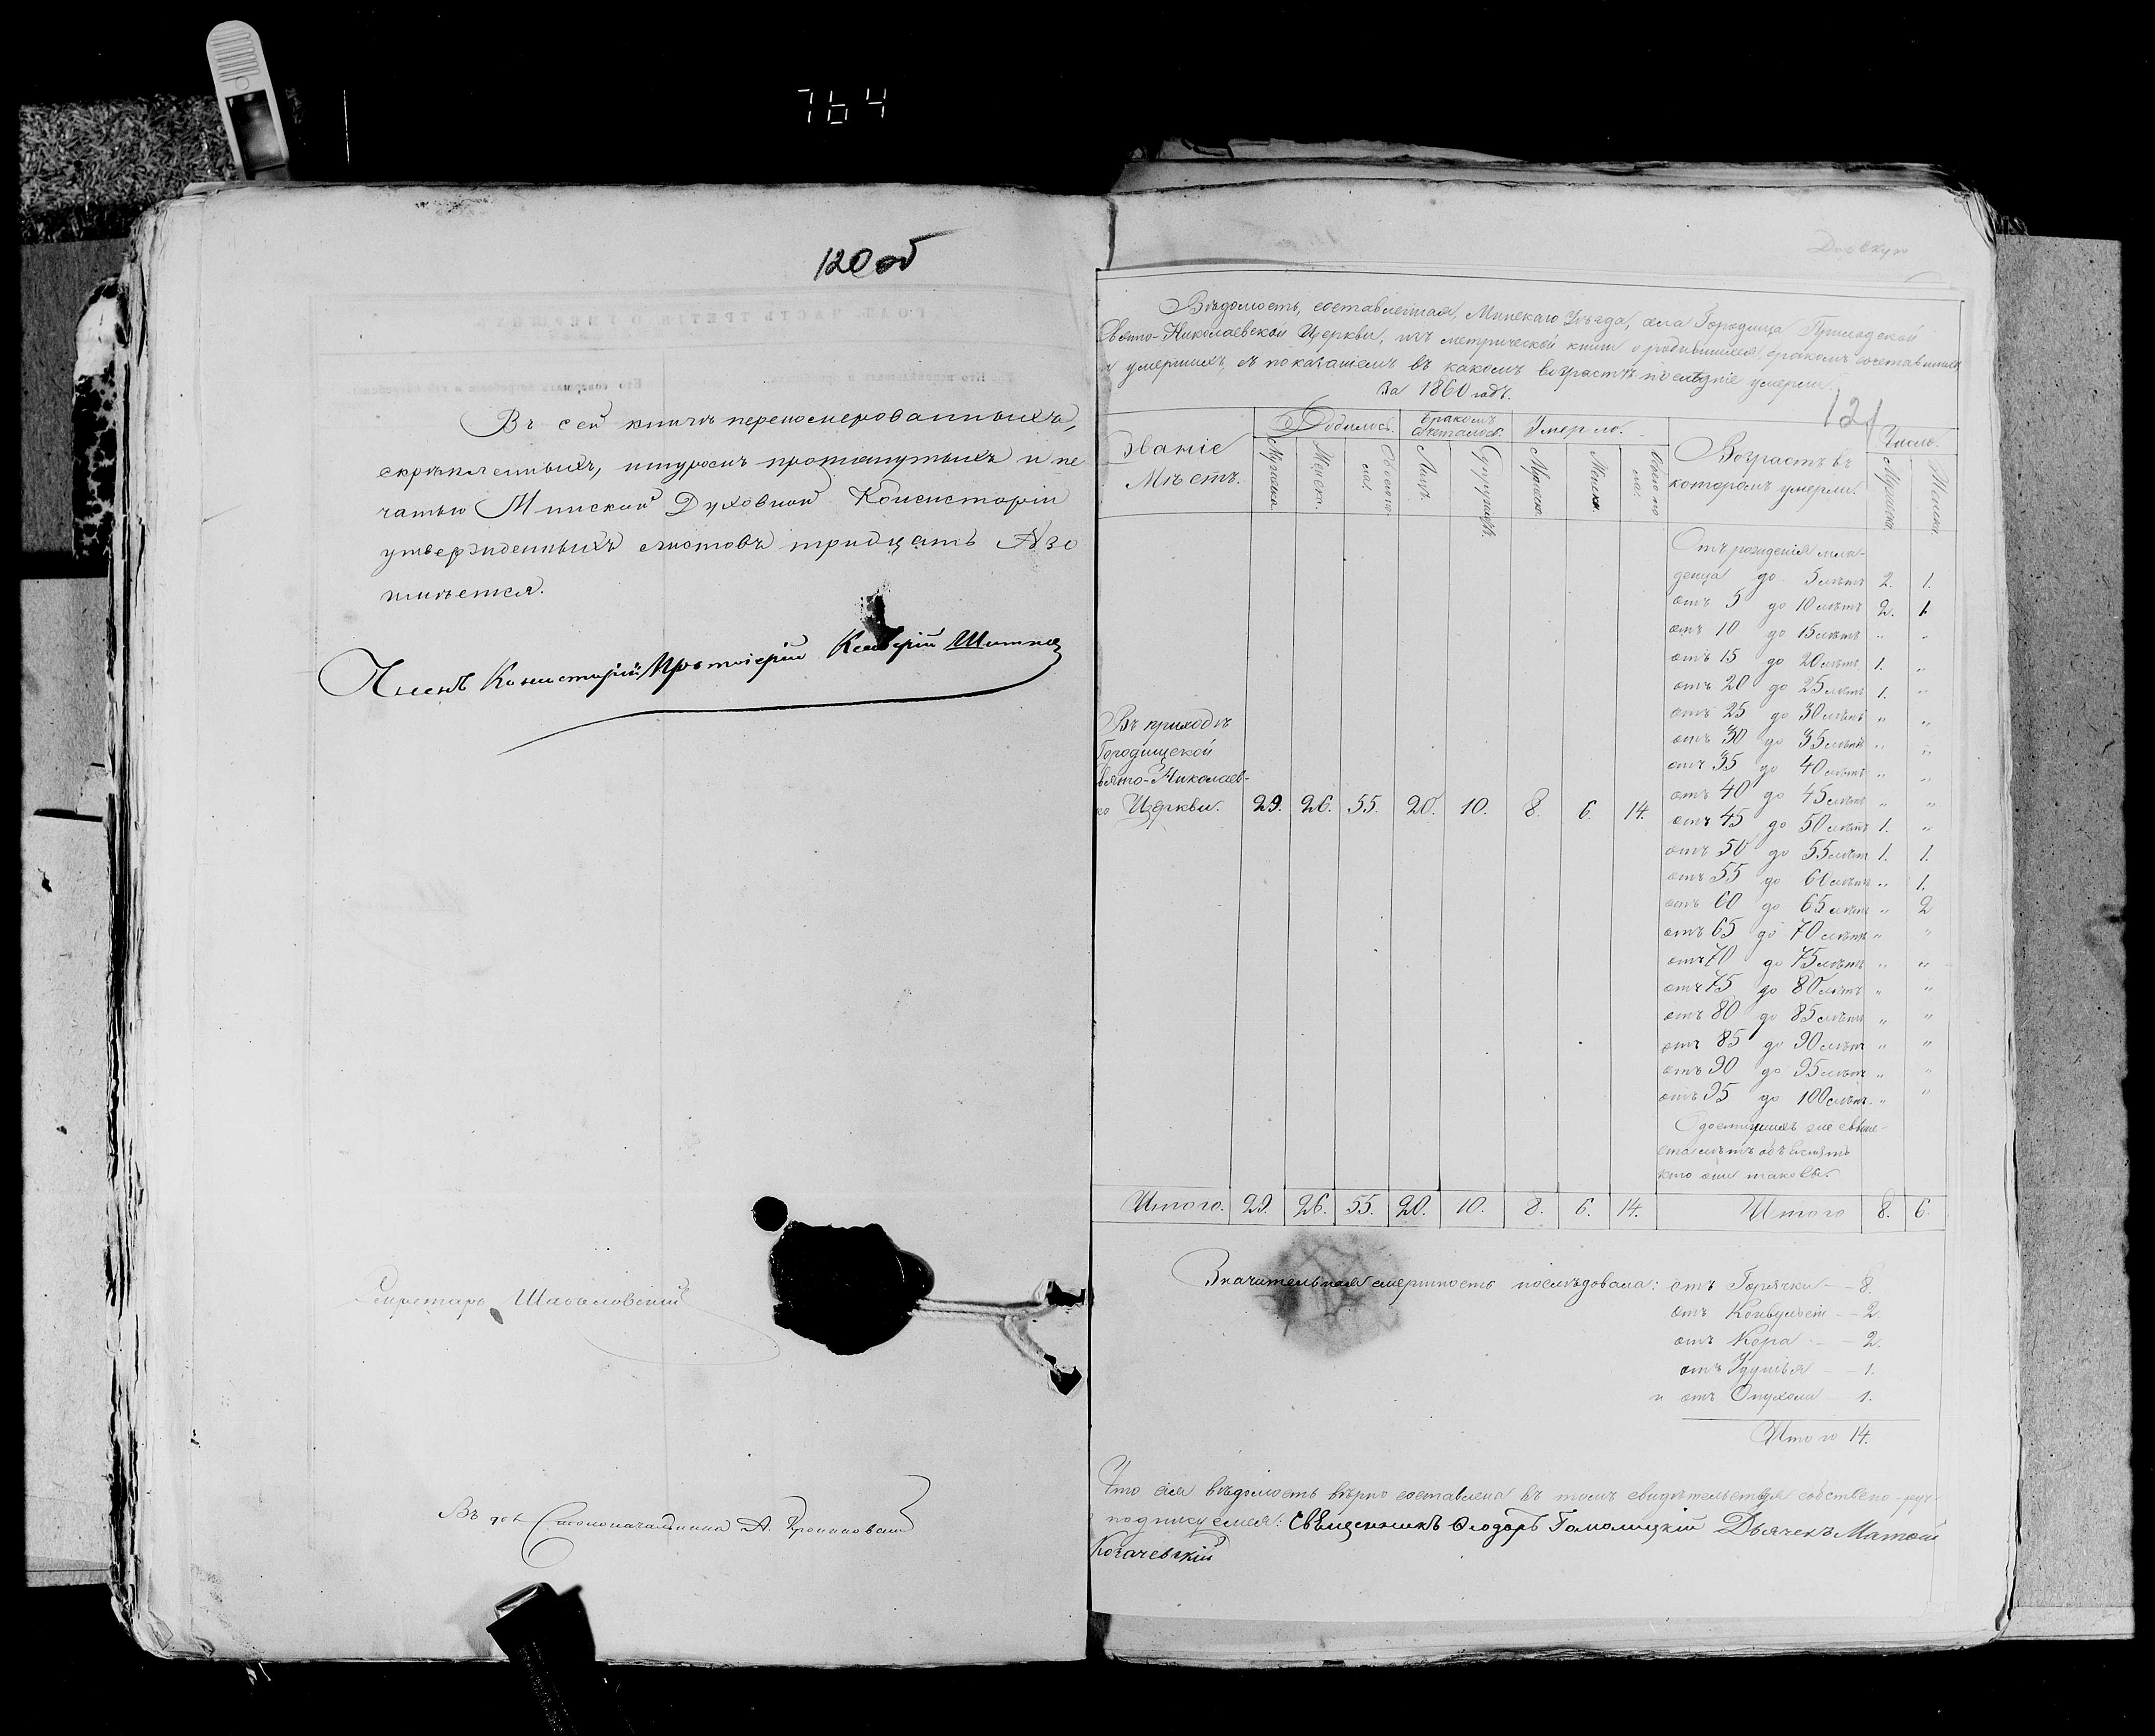 764
120об
Въ сей книгѣ перенумерованныхъ,
скрѣпленныхъ, шнуромъ протянутыхъ и пе
чатью Минской Духовной Консисторіи
утвержденныхъ листовъ тридцать №30
Членъ Консисторіи Протоіерей
Секретарь
Въ дол. Столоначальника А.
Вѣдомость, составленная, Минскаго Уѣзда, села Городища Приходской
Свято-Николаевской Церкви, изъ метрической книги о родившихся, бракомъ сочетавшихся
и умершихъ, съ показаніемъ въ какомъ возрастѣ послѣдніе умерли.
За 1860 годъ.
121
Званіе Мѣстъ. Родилось. Бракомъ сочеталось. Умерло. Возрастъ въ которомъ умерли. Число.
Мужеска. Женска. Обоего пола. Лицъ. Супружествъ. Мужеска. Женска. Обоего пола. Мужеска. Женска.
Отъ рожденія мла-
денца до 5 лѣтъ 2. 1.
отъ 5 до 10 лѣтъ 2. 1.
отъ 10 до 15 лѣтъ " "
отъ 15 до 20 лѣтъ 1. "
отъ 20 до 25 лѣтъ 1. "
отъ 25 до 30 лѣтъ " "
отъ 30 до 35 лѣтъ " "
отъ 35 до 40 лѣтъ " "
отъ 40 до 45 лѣтъ " "
отъ 45 до 50 лѣтъ 1. "
отъ 50 до 55 лѣтъ 1. 1.
отъ 55 до 60 лѣтъ " 1.
отъ 60 до 65 лѣтъ " 2
отъ 65 до 70 лѣтъ " "
отъ 70 до 75 лѣтъ " "
отъ 75 до 80 лѣтъ " "
отъ 80 до 85 лѣтъ " "
отъ 85 до 90 лѣтъ " "
отъ 90 до 95 лѣтъ " "
отъ 95 до 100 лѣтъ " "
О достигшихъ же свыше
ста лѣтъ объяснять
кто они таковы.
Въ приходѣ
Городищской
Свято-Николаев-
ско Церкви. 29. 26. 55. 20. 10. 8. 6. 14.
Итого. 29. 26. 55. 20. 10. 8. 6. 14. Итого 8. 6.
Значительная смертность послѣдовала: отъ Горячки — 8.
отъ Конвульсіи — 2.
отъ Кора — 2.
отъ Удушья — 1.
и отъ Опухоли — 1.
Итого 14.
Что сія вѣдомость вѣрно составлена въ томъ свидѣтельствуя собствено-руч-
подписуемся: Священникъ Ѳеодоръ Гомолицкій Дьячекъ Матѳей